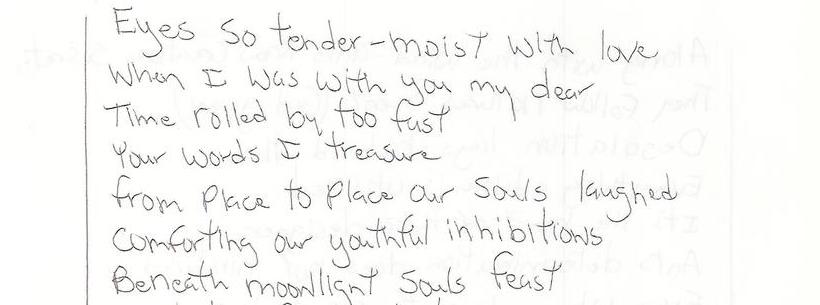 Eyes so tender-moist with love
When I was with you my dear
Time rolled by too fast
Your words I treasure
from place to place our souls laughed
Comforting our youthful inhibitions
Beneath moonlight souls feast